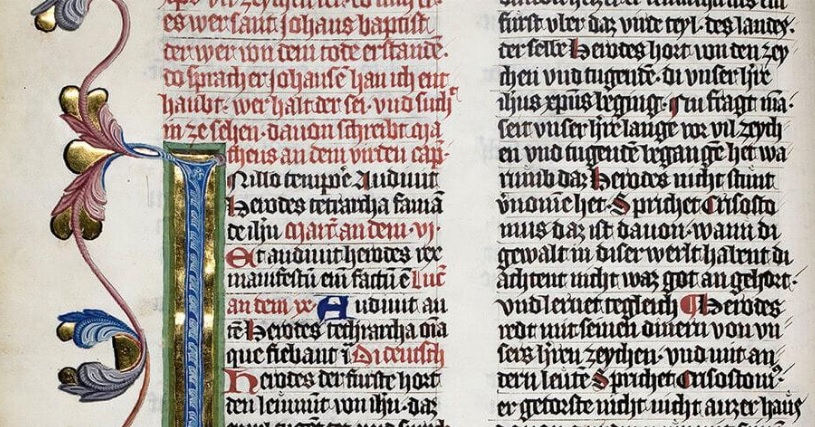 es wer sant Johans baptist
der wer von dem tode erstandē·
do sprach er Johansē han ich ent
haubt· wer halt der sei· vnd such
in ze sehen· dauon schreibt ma
theus an dem virden cap̄·
In illo tempoꝛe Audiuit
Herodes tetrarcha famā
de ihū Marc̄ an dem ·vi·
Et audiuit herodes rex
manifestū eni factū ē Luc̄
an dem ·xx· Audiuit au
tē Herodes techrarcha om̄a
que fiebant Di deutsch
Herodes der furste hort
den leunmt von ihū· daz
fürst vber daz virde teyl· des landes·
der selbe Herodes hort von den zey
chen vnd tugentē· di vnser hr̄e
ihus xpūs beging· Nu fragt mā·
seit vnser hr̄e lange vor vil zeych
en vnd tugentē begangē het wa
rumb daz Herodes nicht
v̄nomē het· Sprichet Crisosto
mus daz ist dauon· wann di
gewalt in diser werlt habent di
achtent nicht waz got an gehort·
vnd lernet tegleich Herodes
redt mit seinen dinern von vn
sers hr̄en zeychen· vnd mit an
dern leutē Sprichet Crisostom9
er getorste nicht nicht auzer haus